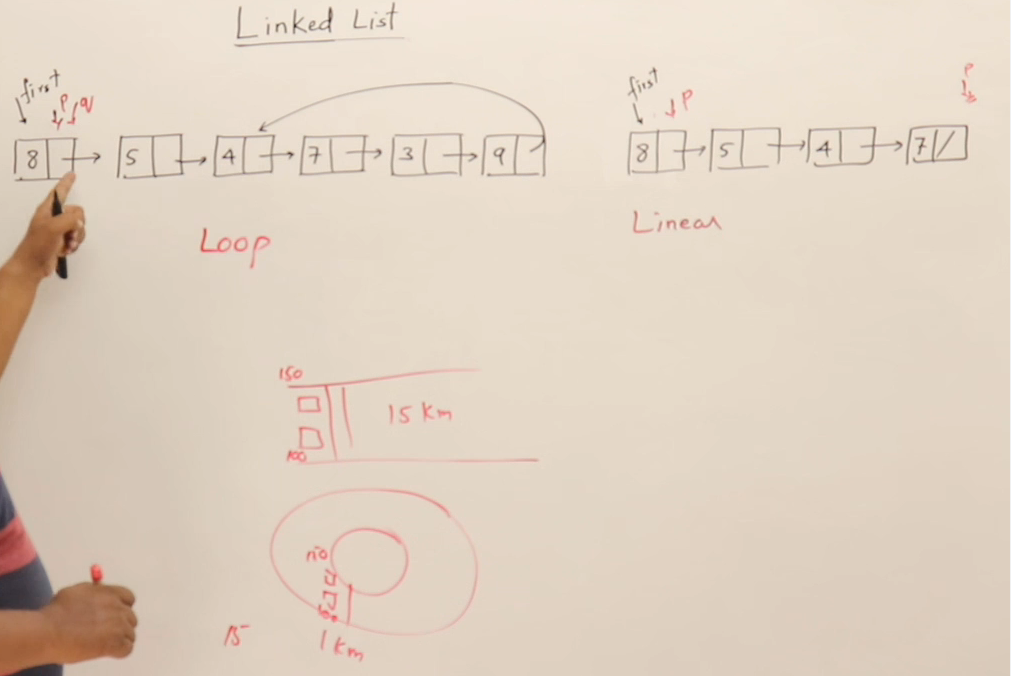 Linked List
first
p q
8 5 4 7 3 9
Loop
first
p
p
8 5 4 7 /
Linear
150
15 Km
100
150
15
1 Km